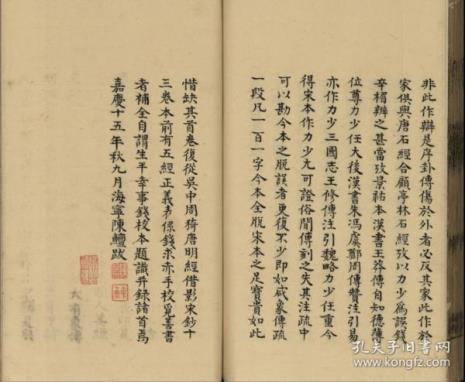 非此作辯是序卦傳傷於外者必反其家此作於
家俱與唐石經合顧亭林石經攷以力少爲誤錢
辛楣辨之甚當攷景祐本漢書王莽傳自知德薄
位尊力少任大後漢書朱馮虞鄭周傳贊注引易
亦作力少三國志王修傳注引魏略力少任重今
得宋本作力少尤可證俗閒傳刻之失其注疏中
可以勘今本之脫誤者更復不少即如咸象傳疏
一段凡一百一字今本全脫宋本之足寶貴如此
惜缺其首卷復從吳中周猗唐明經借影宋鈔十
三卷本前有五經正義表係錢求赤手校另善書
者補全自謂生平幸事錢校本題識并錄諸首焉
嘉慶十五年秋九月海寧陳鱣跋
孔夫子旧书网